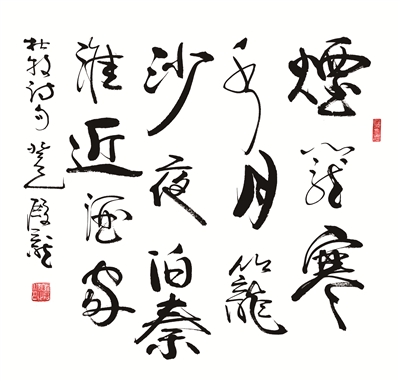 煙籠寒
水月籠
沙夜泊秦
淮近酒家
杜牧詩句